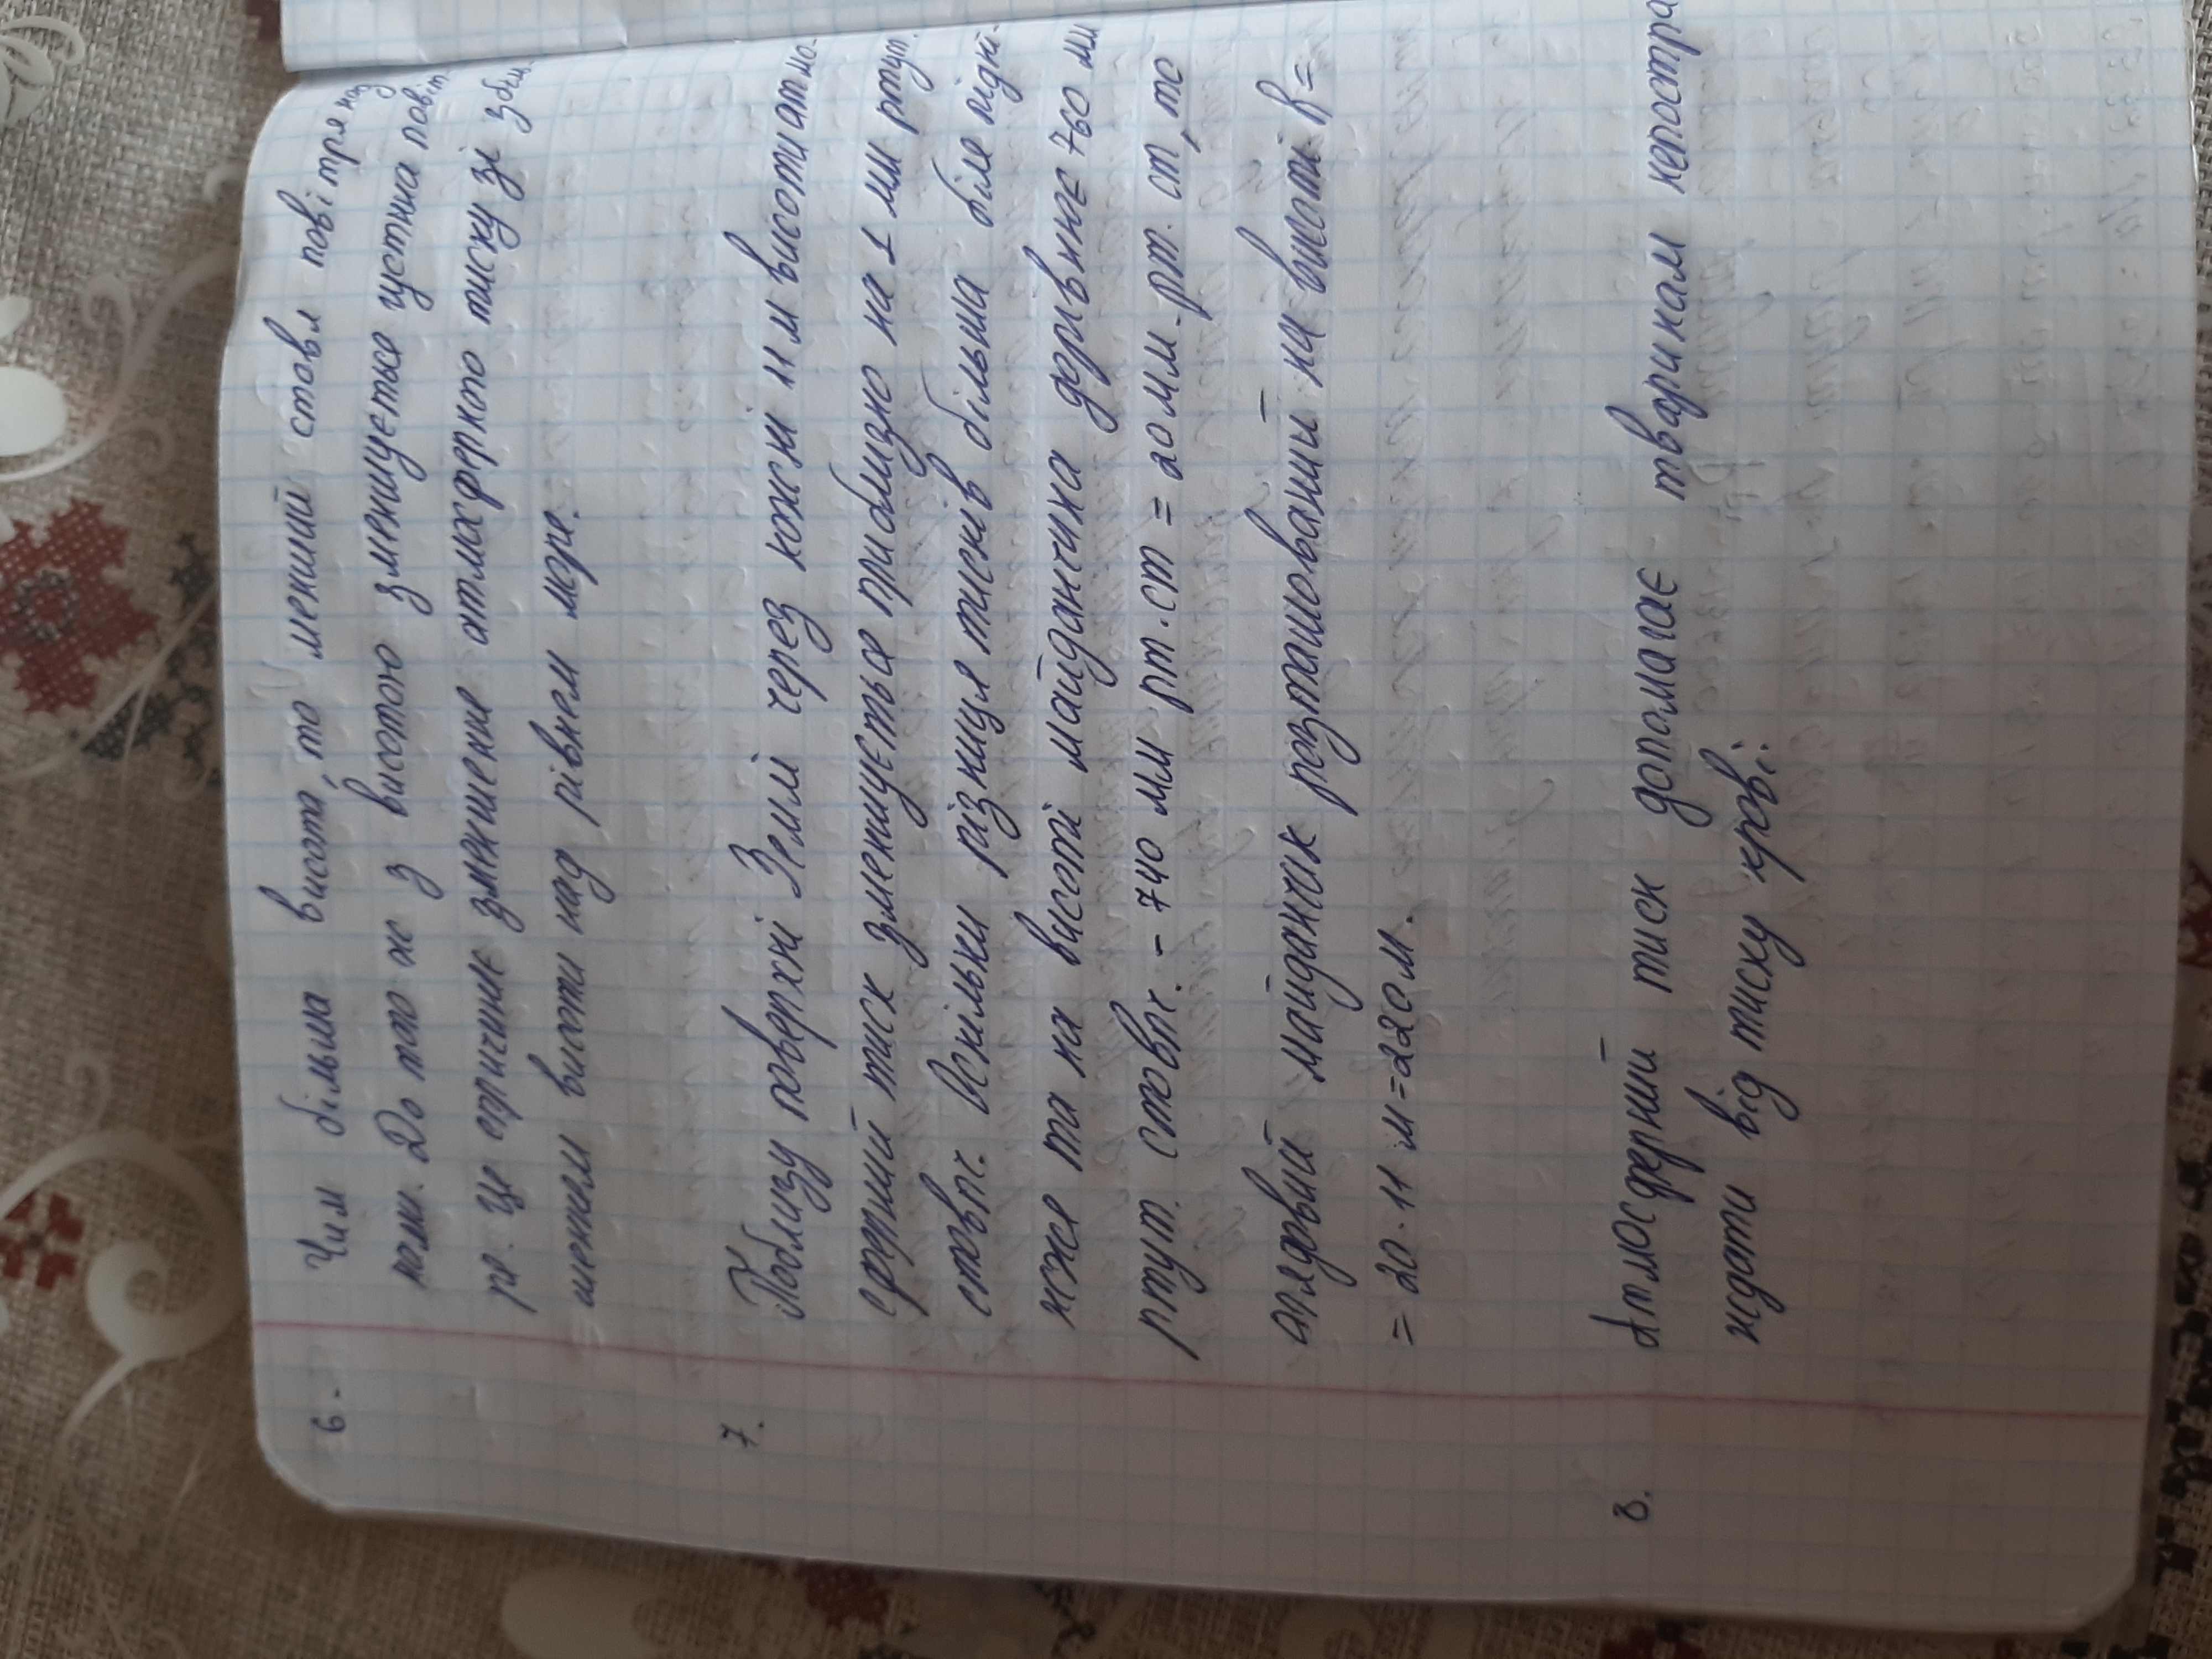 6. Чим більша висота, то менший стовп повітря над
нами. До того ж з висотою зменшується густина повіт-
ря. Це спричиняє зменшення атмосферного тиску зі збіль-
шенням висоти над рівнем моря.
7. Поблизу поверхні Землі через кожні 11 м висоти атмо-
сферний тиск зменшується приблизно на 1 мм ртут.
стовпч. Оскільки різниця тисків більша біля підні-
жжя та на висоті майданчика дорівнює 760 мм
ртут. стовпч. - 740 мм рт. ст = 20 мм. рт. ст, то
оглядовий майданчик розташований на висоті h =
= 20 · 11 м = 220 м.
8. Атмосферний тиск допомагає тваринам непостра-
ждати від тиску крові.